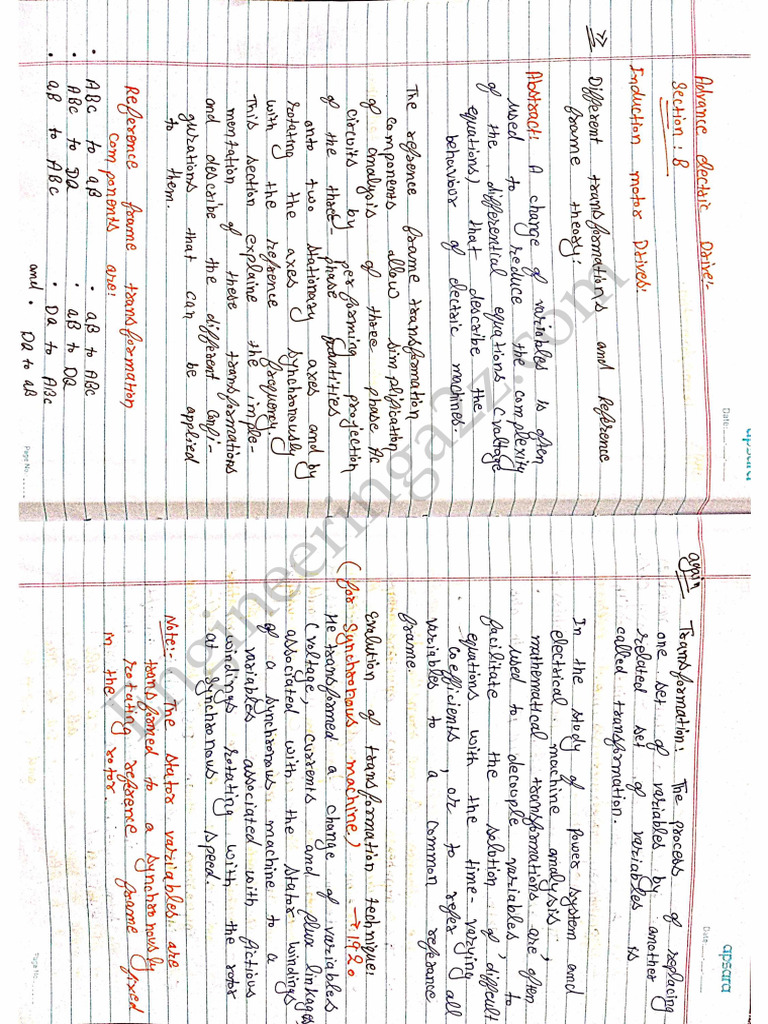 apsara
Date:
Advance electric Drive:-
Section: B
Induction motor Drives:
>> Different transformations and reference
frame theory:
Abstract: A change of variables is often
used to reduce the complexity
of the differential equations (voltage
equations) that describe the
behaviour of electric machines.
The refrence frame transformation
components allow simplification
of analysis of three phase Ac
circuits by performing projection
of the three-phase quantities
onto two stationary axes and by
rotating the axes synchronously
with the refrence frequency.
This section explaine the imple-
mentation of these transformations
and describe the different confi-
gurations that can be applied
to them.
Reference frame transformation
components are:
• ABC to αβ • αβ to ABC
• ABC to DQ • αβ to DQ
• αβ to ABC • DQ to ABC
and • DQ to αβ
Page No
apsara
Date:
again Transformation: The process of replacing
one set of variables by another
related set of variables is
called transformation.
In the study of power system and
electrical machine analysis,
mathematical transformations are often
used to decouple variables, to
facilitate the solution of difficult
equations with the time-varying
coefficients, or to refer all
variables to a common referance
frame.
Evalution of transformation technique:
(for Synchronous machine) → 1920
He transformed a change of variables
(voltage, currents and flux linkages
associated with the stator windings
of a synchronous machine to a
variables associated with fictious
windings rotating with the rotor
at synchronous speed.
Note:- The stator variables are
transformed to a synchronously
rotating reference frame fixed
in the rotor.
Page No
Engineeringa2z.com